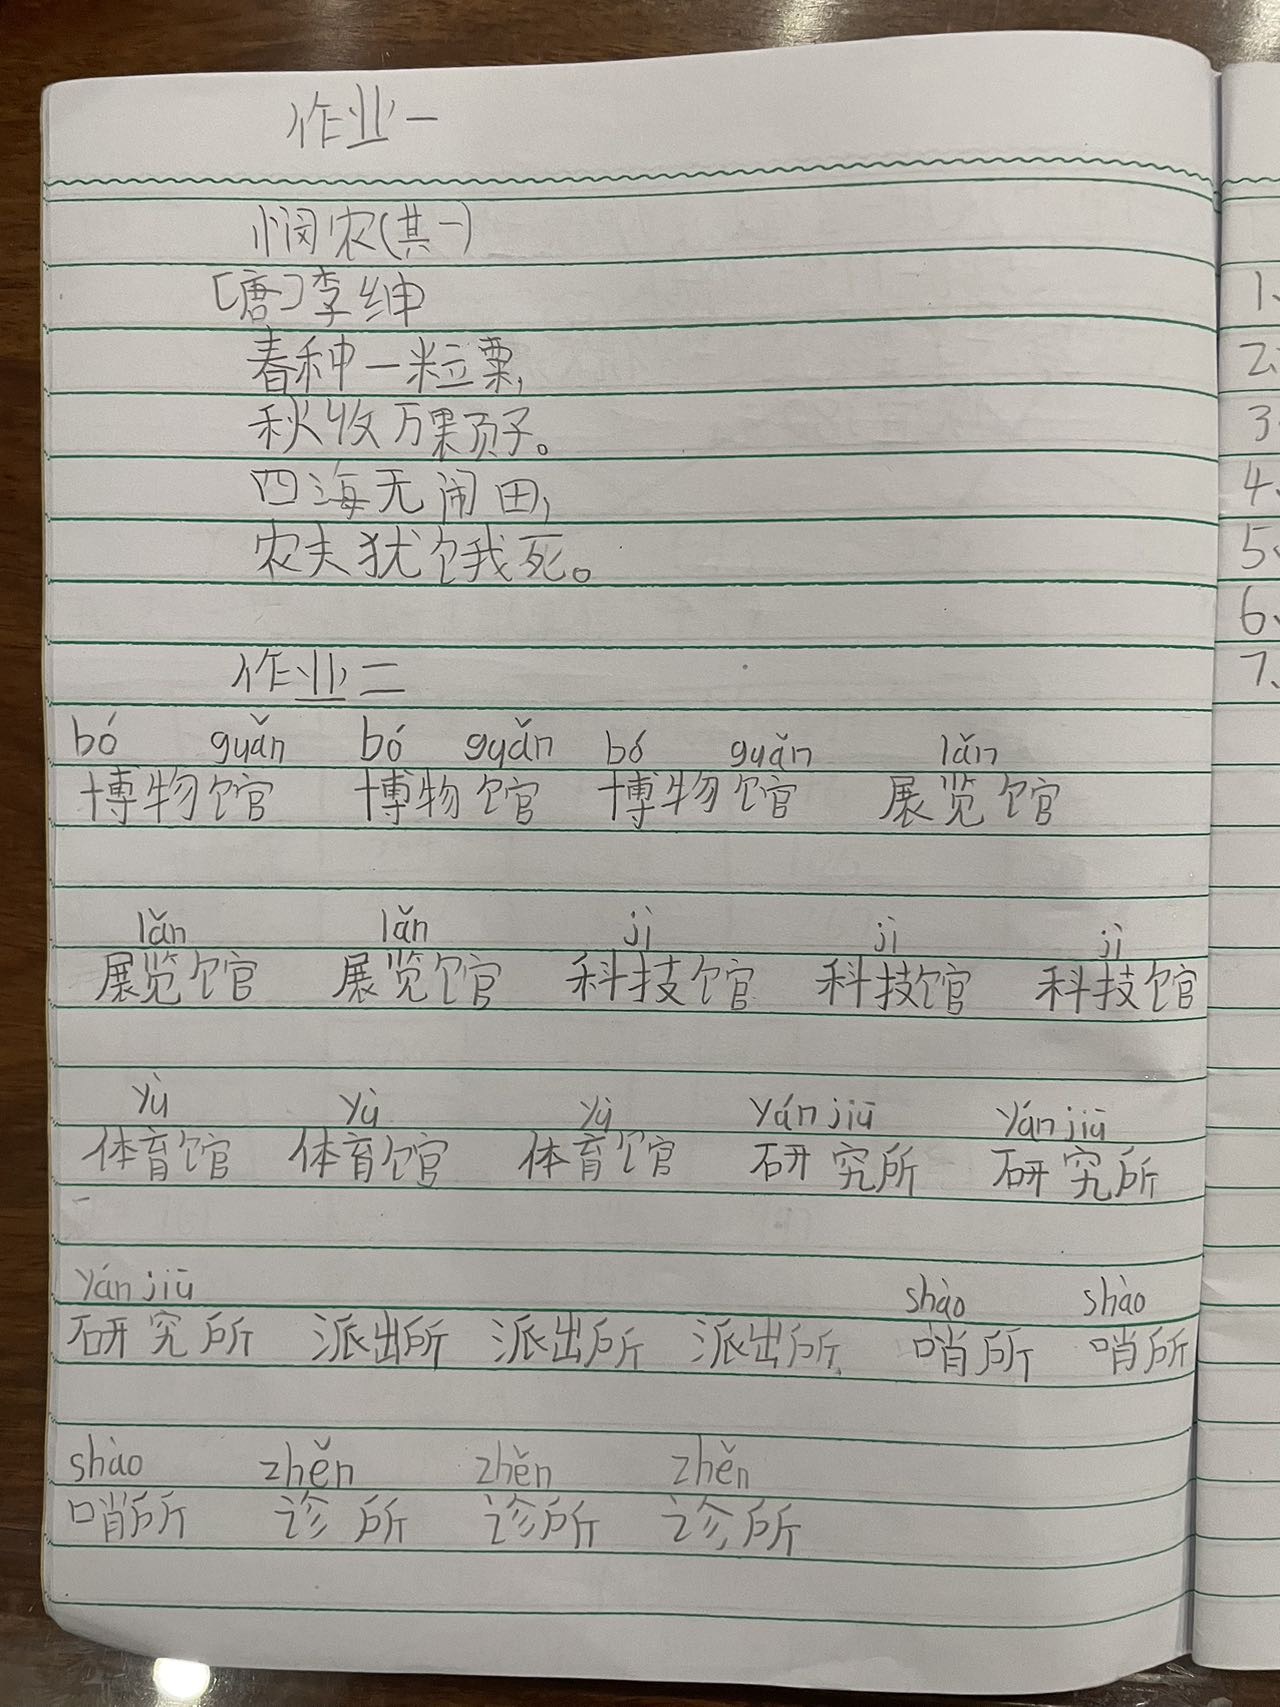 作业一
悯农(其一)
[唐]李绅
春种一粒粟,
秋收万颗子。
四海无闹田,
农夫犹饿死。
作业二
bó guǎn bó guǎn bó guǎn lǎn
博物馆 博物馆 博物馆 展览馆
lǎn lǎn jì jì jì
展览馆 展览馆 科技馆 科技馆 科技馆
yù yù yù yán jiū yán jiū
体育馆 体育馆 体育馆 研究所 研究所
yán jiū shào shào
研究所 派出所 派出所 派出所 哨所 哨所
shào zhěn zhěn zhěn
哨所 诊所 诊所 诊所
1、
2、
3、
4、
5、
6、
7、